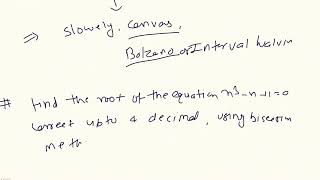 ⇒ slowely. Canvas,
Bolzano or Interval halvin
# find the root of the equation x³-x-1=0
correct upto 4 decimal, using bisection
meth